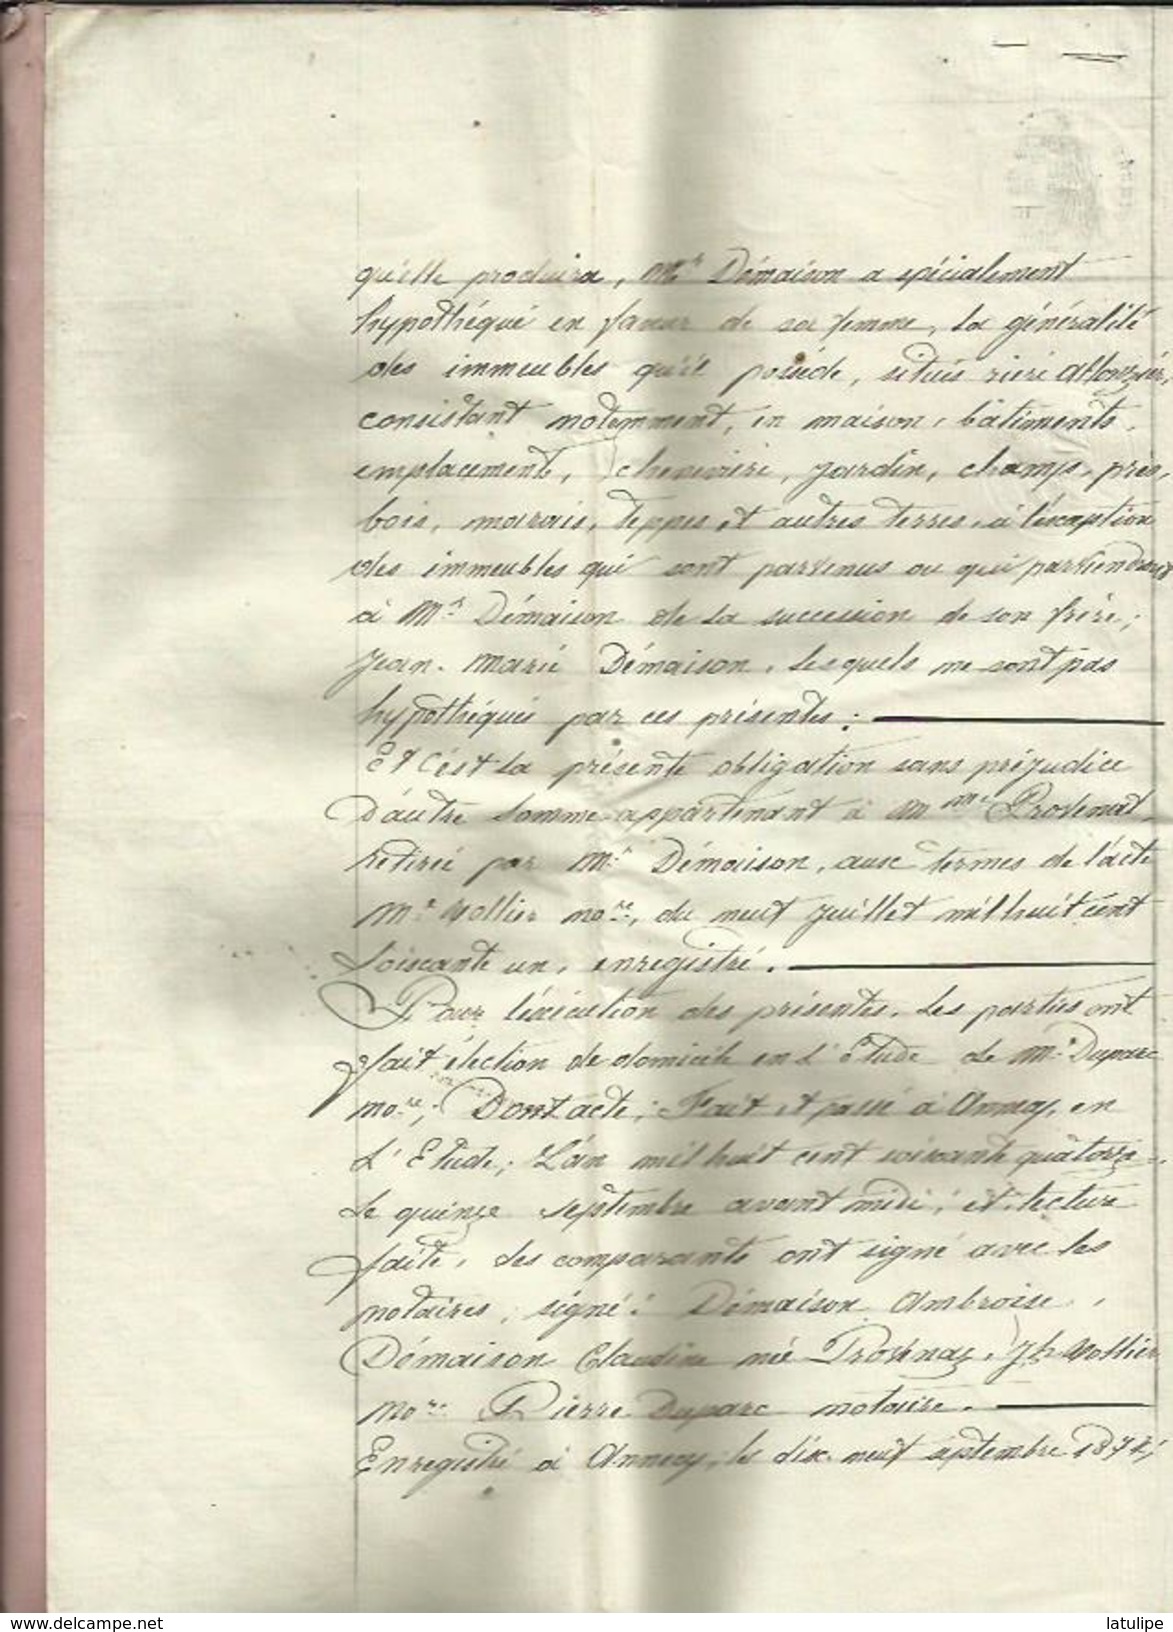 qu'elle produira, Mr Démaison a spécialement
hypothéqué en faveur de sa femme, la généralité
des immeubles qu'il possède, situés rière Allonzier,
consistant notemment, en maison, bâtiments,
emplacements, chenevière, jardin, champs, prés,
bois, marais, teppes, et autres terres, à l'éxception
des immeubles qui sont parvenus ou qui parviendront
à Mr Démaison de la succession de son frère;
Jean-Marie Démaison, lesquels ne sont pas
hypothéqués par ces présentes;
Et c'est la présente obligation sans préjudice
d'autre somme appartenant à Mme Provenat
retirée par Mr Démaison, aux termes de l'acte
Me Vollier nore, du neuf juillet mil huit cent
soixante un, enregistré.
Pour l'éxécution des présentes, les parties ont
fait élection de domicile en l'étude de Me Duparc
nore; Dont acte; Fait et passé à Annecy, en
l'Etude; L'an mil huit cent soixante quatorze
le quinze septembre avant midi; et lecture
faite, les comparants ont signé avec les
notaires, signé: Démaison Ambroise,
Démaison Claudine née Provenaz, Jh Vollier
nore Pierre Duparc notaire.
Enregistré à Annecy, le dix neuf septembre
www.delcampe.net
latulipe